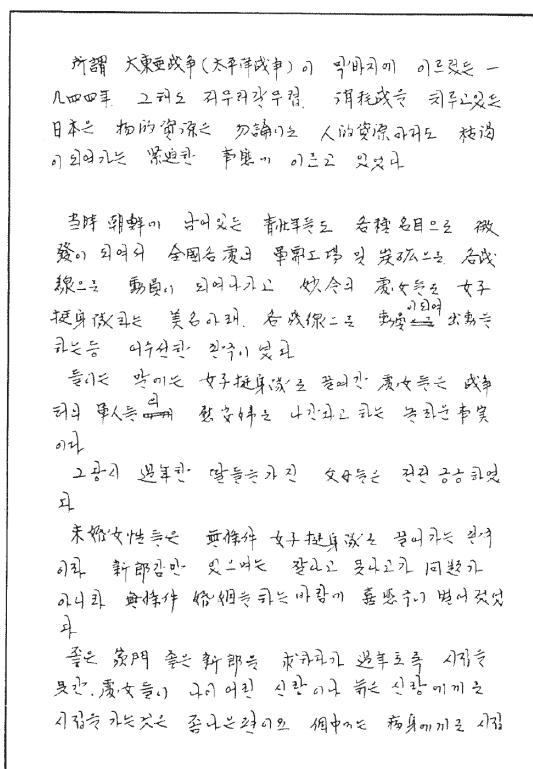 所謂 大東亜战争(太平洋战争)이 막바지에 이르렀든 一
九四四年. 그래도 지푸라각우접. 消耗战을 치루고있는
日本은 物的資源은 勿論이고 人的資源까지도 枯渴
이 되여가는 緊迫한 事態에 이르고 있었다
当時 朝鮮에 남어있는 青壮年들도 各種名目으로 徴
發이 되여서 全國各處의 軍需工場 및 炭砿으로 各战
線으로 動員이 되여나가고 妙令의 處女들도 女子
挺身隊라는 美名아래. 各战線으로 動員이되여 出動을
하는등 어수선한 전국이였다
들리는 말에는 女子挺身隊로 끌여간 處女들은 战争
터의 軍人들의 慰安婦로 나간다고하는 놀라운事実
이다
그광시 過年한 딸들을가진 父母들은 전전긍긍하였
다
未婚女性들은 無條件 女子挺身隊로 끌어가는 전국
이라 新郎감만 있으며는 잘나고 못나고가 問題가
아니라 無條件 婚姻을하는바람에 喜悲극이 벌어졌었
다
좋은 家門 좋은 新郎을 求하다가 過年토록 시집을
못간. 處女들이 나이어린 신랑이나 늙은 신랑에게로
시집을 가는것은 좀나은편이요 個中에는 病身에게로 시집